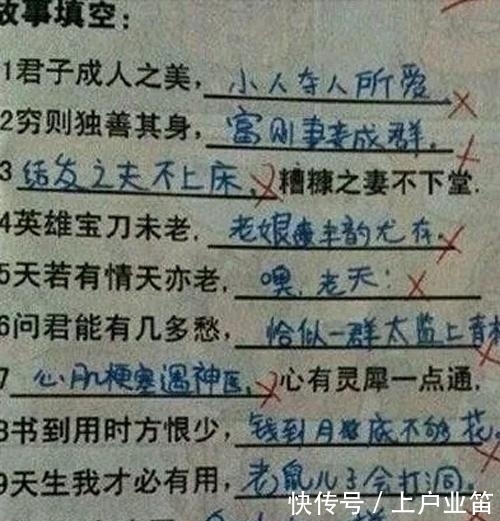 故事填空:
1君子成人之美,小人夺人所爱.
2穷则独善其身,富则妻妾成群.
3结发之夫不上床,糟糠之妻不下堂.
4英雄宝刀未老,老娘丰韵尤存.
5天若有情天亦老,噢,老天!
6问君能有几多愁,恰似一群太监上青
7心肌梗塞遇神医,心有灵犀一点通,
8书到用时方恨少,钱到月底不够花.
9天生我才必有用,老鼠儿子会打洞.
快传号/上户业笛